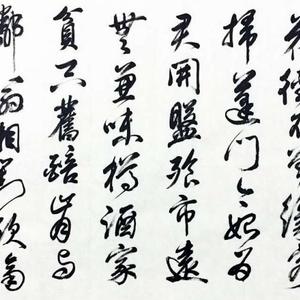 花徑不曾緣客
掃蓬門今始為
君開盤飧市遠
無兼味樽酒家
貧只舊醅肯与
鄰翁相對飲隔